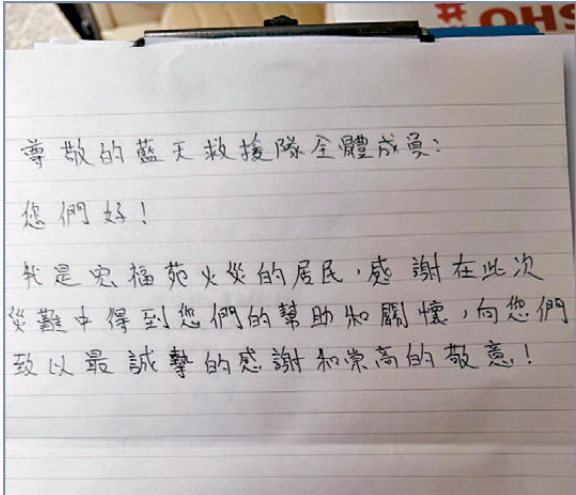 #OHS
尊敬的藍天救援隊全體成員:
您們好!
我是宏福苑火災的居民,感謝在此次
災難中得到您們的幫助和關懷,向您們
致以最誠摯的感謝和崇高的敬意!